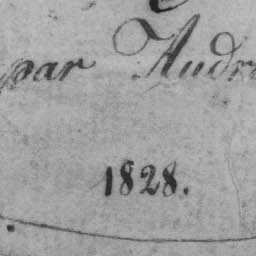 par Audr
1828.